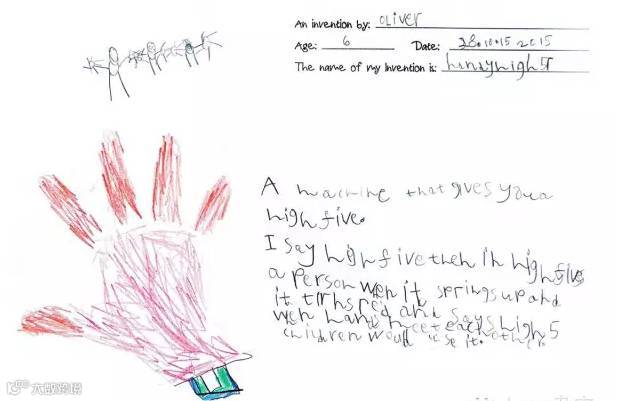 An invention by: OLiver
Age: 6 Date: 28.10.15 2015
The name of my Invention is: handyhigh5
A machine that gives you a
high five.
I Say high five then ih high fives
a Person wen it springs up and
it turns red and says high 5
wen hands meet each other.
children would use it.